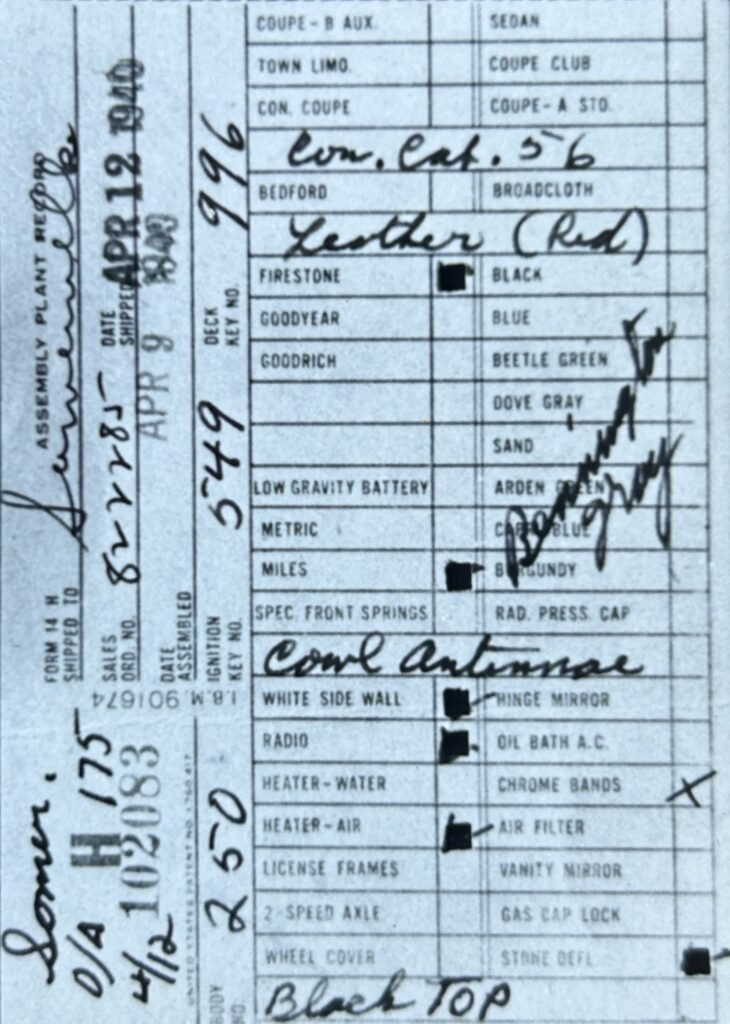 COUPE-B AUX. SEDAN
TOWN LIMO. COUPE CLUB
CON. COUPE COUPE-A STD.
Con. Cab. 56
BEDFORD BROADCLOTH
Leather (Red)
FIRESTONE BLACK
GOODYEAR BLUE
GOODRICH BEETLE GREEN
DOVE GRAY
SAND
LOW GRAVITY BATTERY ARDEN GREEN
METRIC BLUE
MILES BURGUNDY
SPEC. FRONT SPRINGS RAD. PRESS. CAP
Bennington
gray
Cowl Antinnae
WHITE SIDE WALL HINGE MIRROR
RADIO OIL BATH A.C.
HEATER-WATER CHROME BANDS X
HEATER-AIR AIR FILTER
LICENSE FRAMES VANITY MIRROR
2-SPEED AXLE GAS CAP LOCK
WHEEL COVER STONE DEFL
Black TOP
ASSEMBLY PLANT RECORD
FORM 14 H
SHIPPED TO
SALES ORD. NO. 822285 DATE SHIPPED APR 12 1940
DATE ASSEMBLED APR 9 1940
IGNITION KEY NO. 549 DECK KEY NO. 996
I.B.M. 901674
Somer.
D/A H 175
102083
4/12
UNITED STATES PATENT NO.
BODY NO. 250